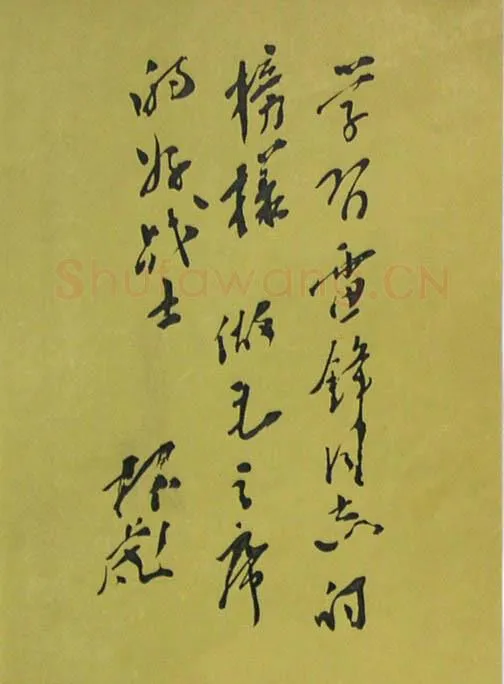 学习雷锋同志的
榜樣 做毛主席
的好战士
林彪
Shufawang.CN